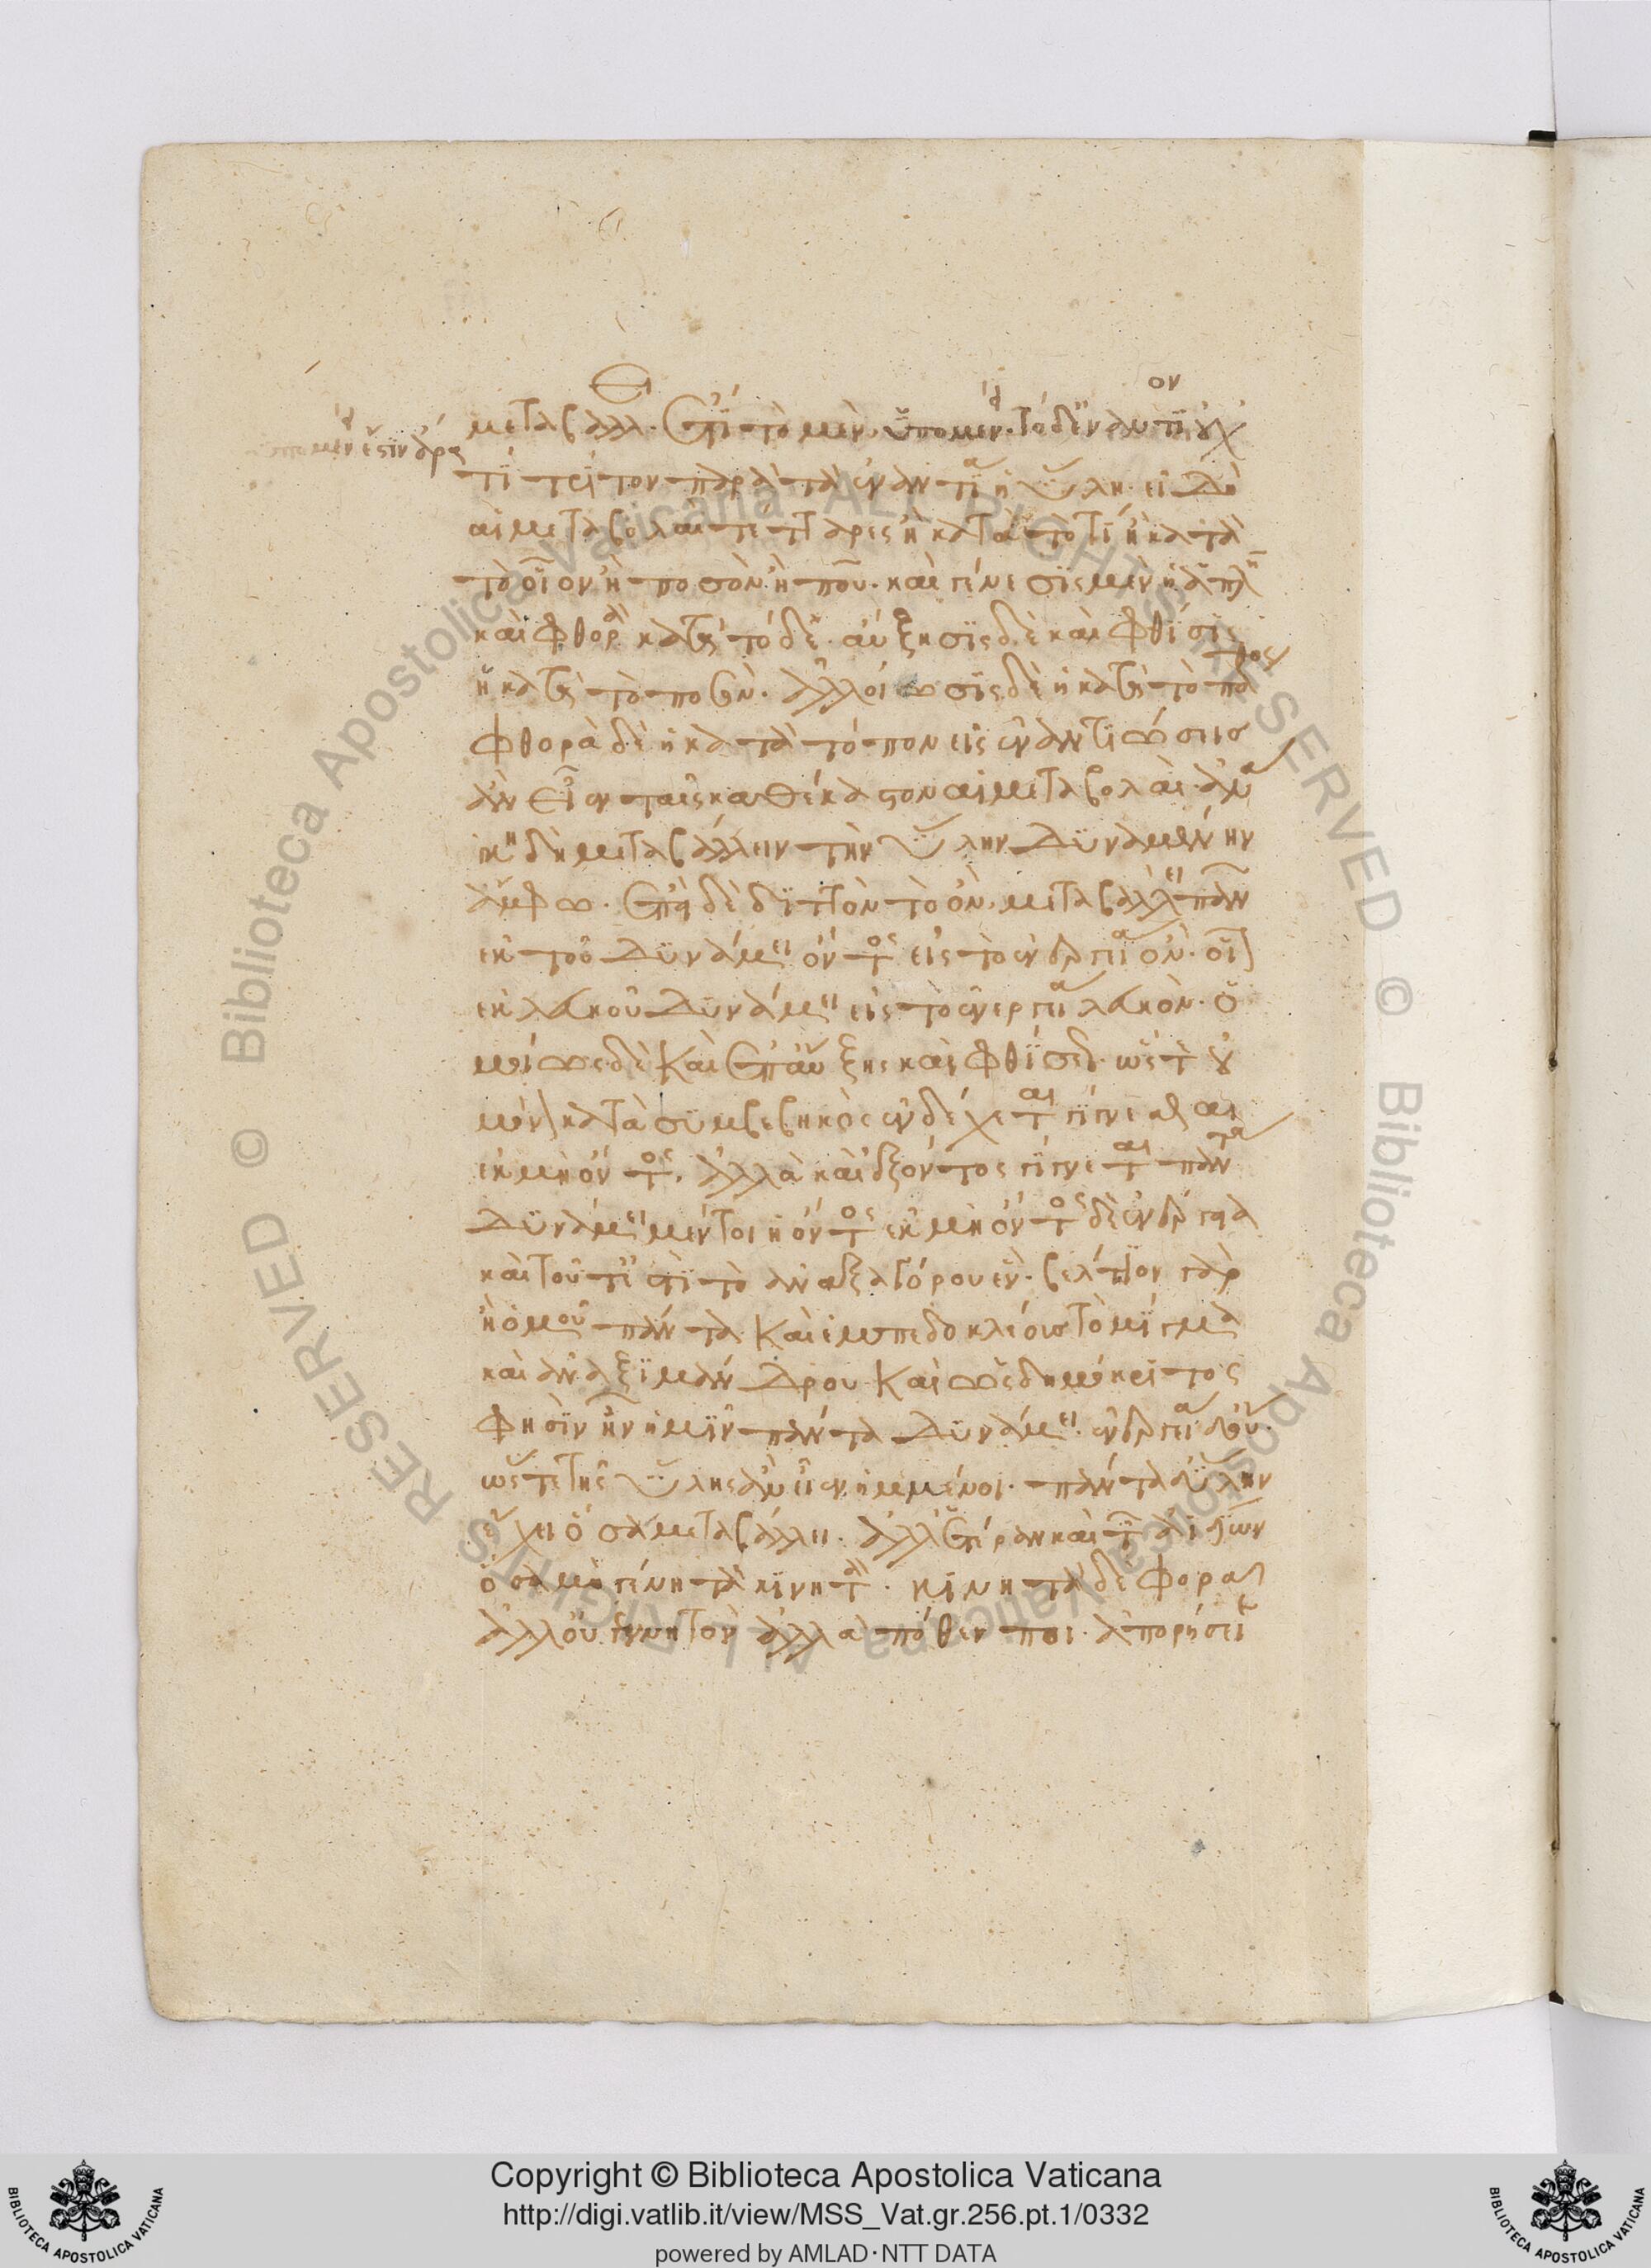 μεταβάλλ. ἔτι τὸ μὲν ὑπομέν. τὸ δ' ἐναντίον οὐχ
ὑπομέν ἔστιν ἄρα
τὶ τρίτον παρὰ τὰ ἐναντία ἡ ὕλη. εἰ δὴ
αἱ μεταβολαὶ τέτταρες ἢ κατὰ τὸ τί ἢ κατὰ
τὸ οἷον ἢ ποσὸν. ἢ ποῦ. καὶ γένεσις μὲν ἡ ἁπλῆ
καὶ φθορὰ κατὰ τόδε. αὔξησις δὲ καὶ φθίσις
ἡ κατὰ τὸ ποσὸν. ἀλλοίωσις δὲ ἡ κατὰ τὸ πάθος
φθορὰ δὲ ἡ κατὰ τόπον εἰς ἐναντιώσεισ
ἂν εἶεν ταῖς καθέκαστον αἱ μεταβολαὶ. ἀνά
γκη δὴ μεταβάλλειν τὴν ὕλην δυναμένην
ἄμφω. ἐπεὶ δὲ διττὸν τὸ ὂν. μεταβάλλει πᾶν
ἐκ τοῦ δυνάμει ὄντος εἰς τὸ ἐνεργεία ὂν. οἷον
ἐκ λευκοῦ δυνάμει εἰς τὸ ἐνεργεία λευκὸν. ὁ
μοίως δὲ καὶ ἐπ' αὔξης καὶ φθίσεως. ὥστ' οὐ
μόνον κατὰ συμβεβηκὸς ἐνδέχεται γίγνεσθαι
ἐκ μὴ ὄντος. ἀλλὰ καὶ ἐξ ὄντος γίγνεται πάντα
δυνάμει μέντοι ἢ ὄντος ἐκ μὴ ὄντος δὲ ἐνεργεία
καὶ τοῦτ' ἔστι τὸ ἀναξαγόρου ἓν. βέλτιον γὰρ
ἢ ὁμοῦ πάντα καὶ ἐμπεδοκλέους τὸ μίγμα
καὶ ἀναξιμάνδρου καὶ ὡς δημόκριτος
φησὶν ἦν ἡμῖν πάντα δυνάμει. ἐνεργεία δ' οὔ.
ὥστε τῆς ὕλης ἂν εἶεν ἡμμένοι. πάντα δ' ὕλην
ἔχει ὅσα μεταβάλλει. ἀλλ' ἑτέραν καὶ τῶν ἀϊδίων
ὅσα μὴ γένητὰ κινητὰ. κινητὰ δὲ φορᾷ
ἀλλ' οὐ γεννητὸν ἀλλὰ πόθεν ποι. ἀπορήσειε